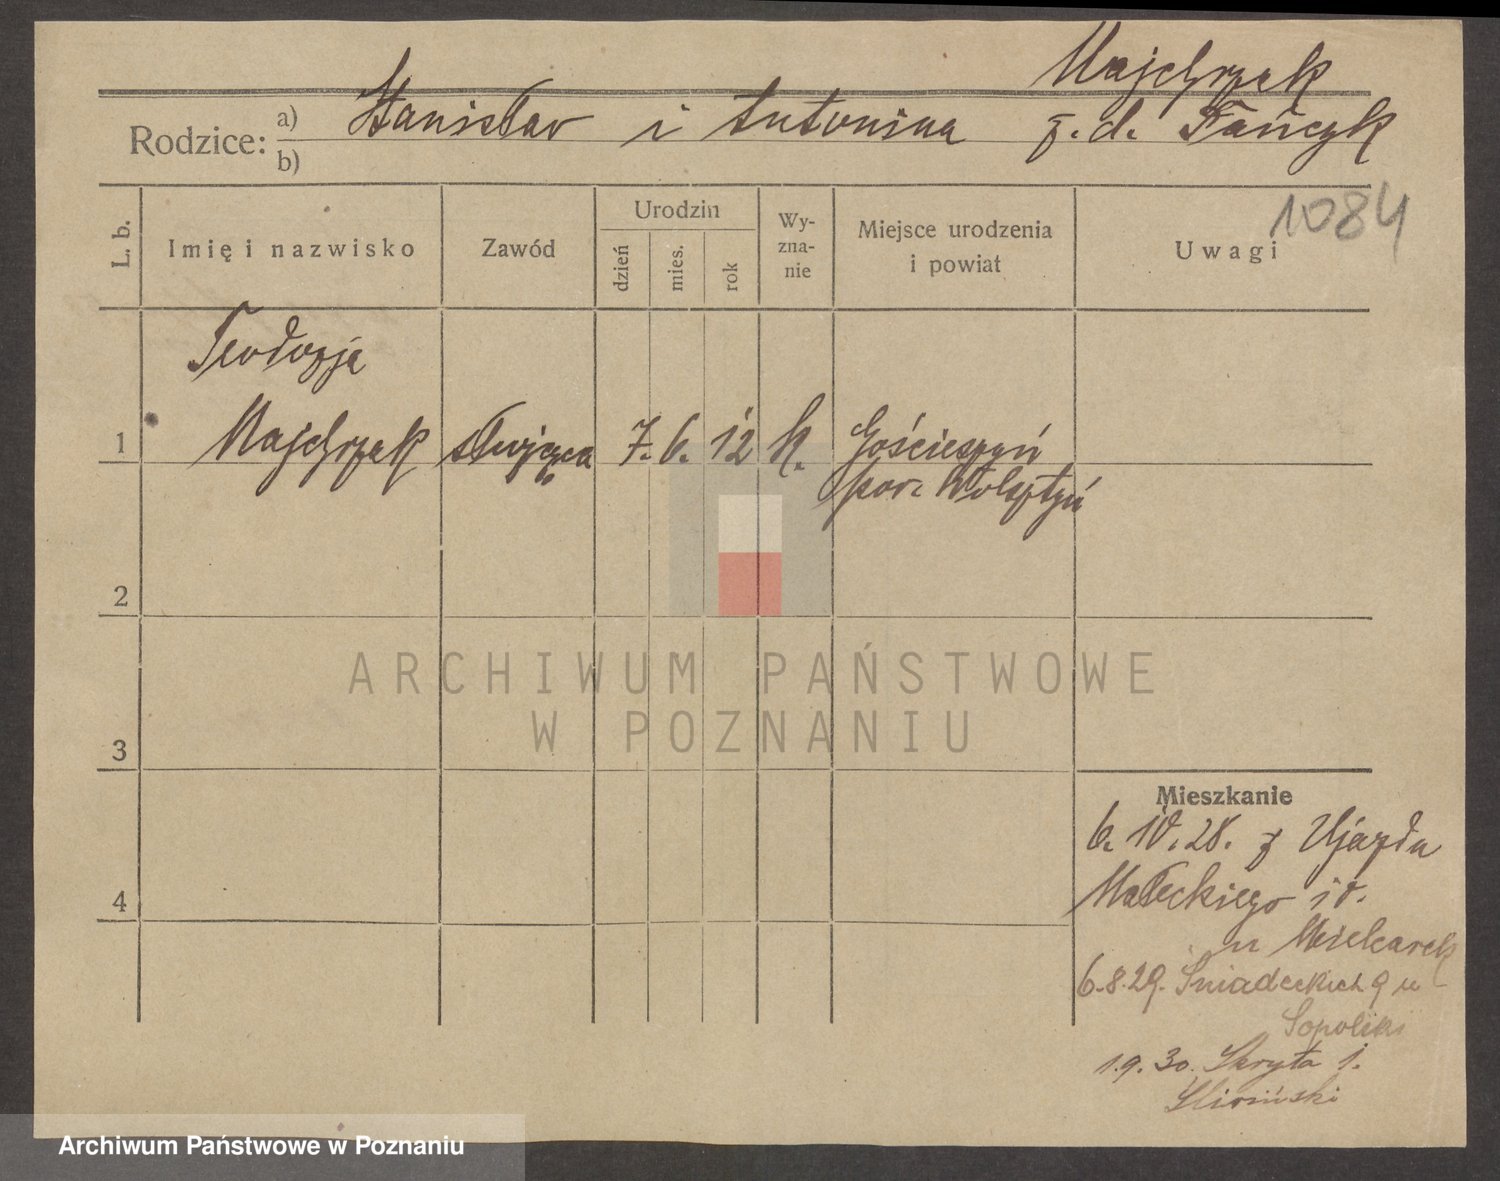 Majchrzak
Rodzice: a) Stanisław i Antonina z. d. Tańczyk
b)
1084
L. b.
Imię i nazwisko
Zawód
Urodzin
dzień
mies.
rok
Wy-
zna-
nie
Miejsce urodzenia
i powiat
Uwagi
Teodozja
1 Majchrzak służąca 7. 6. 12 k. Gościeszyn
pow. Wolsztyn
2
3
4
ARCHIWUM PAŃSTWOWE
W POZNANIU
Mieszkanie
6. 10. 28. z Ujazdu
Małeckiego 10.
u Mielcarek
6.8.29. Śniadeckich 9 u
1.9.30. Skryta 1.
Archiwum Państwowe w Poznaniu